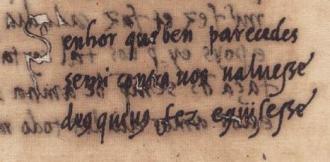 Senhor que ben parecedes
se mi contra uos ualuesse
deus que uos fez equisesse